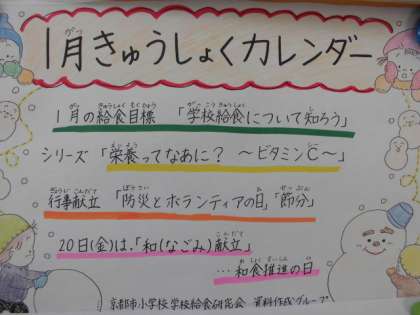 1月きゅうしょくカレンダー
1月の給食目標 「学校給食について知ろう」
シリーズ「栄養ってなあに? ～ビタミンC～」
行事献立 「防災とボランティアの日」「節分」
20日(金)は、「和(なごみ)献立」
…和食推進の日
京都市小学校学校給食研究会 資料作成グループ